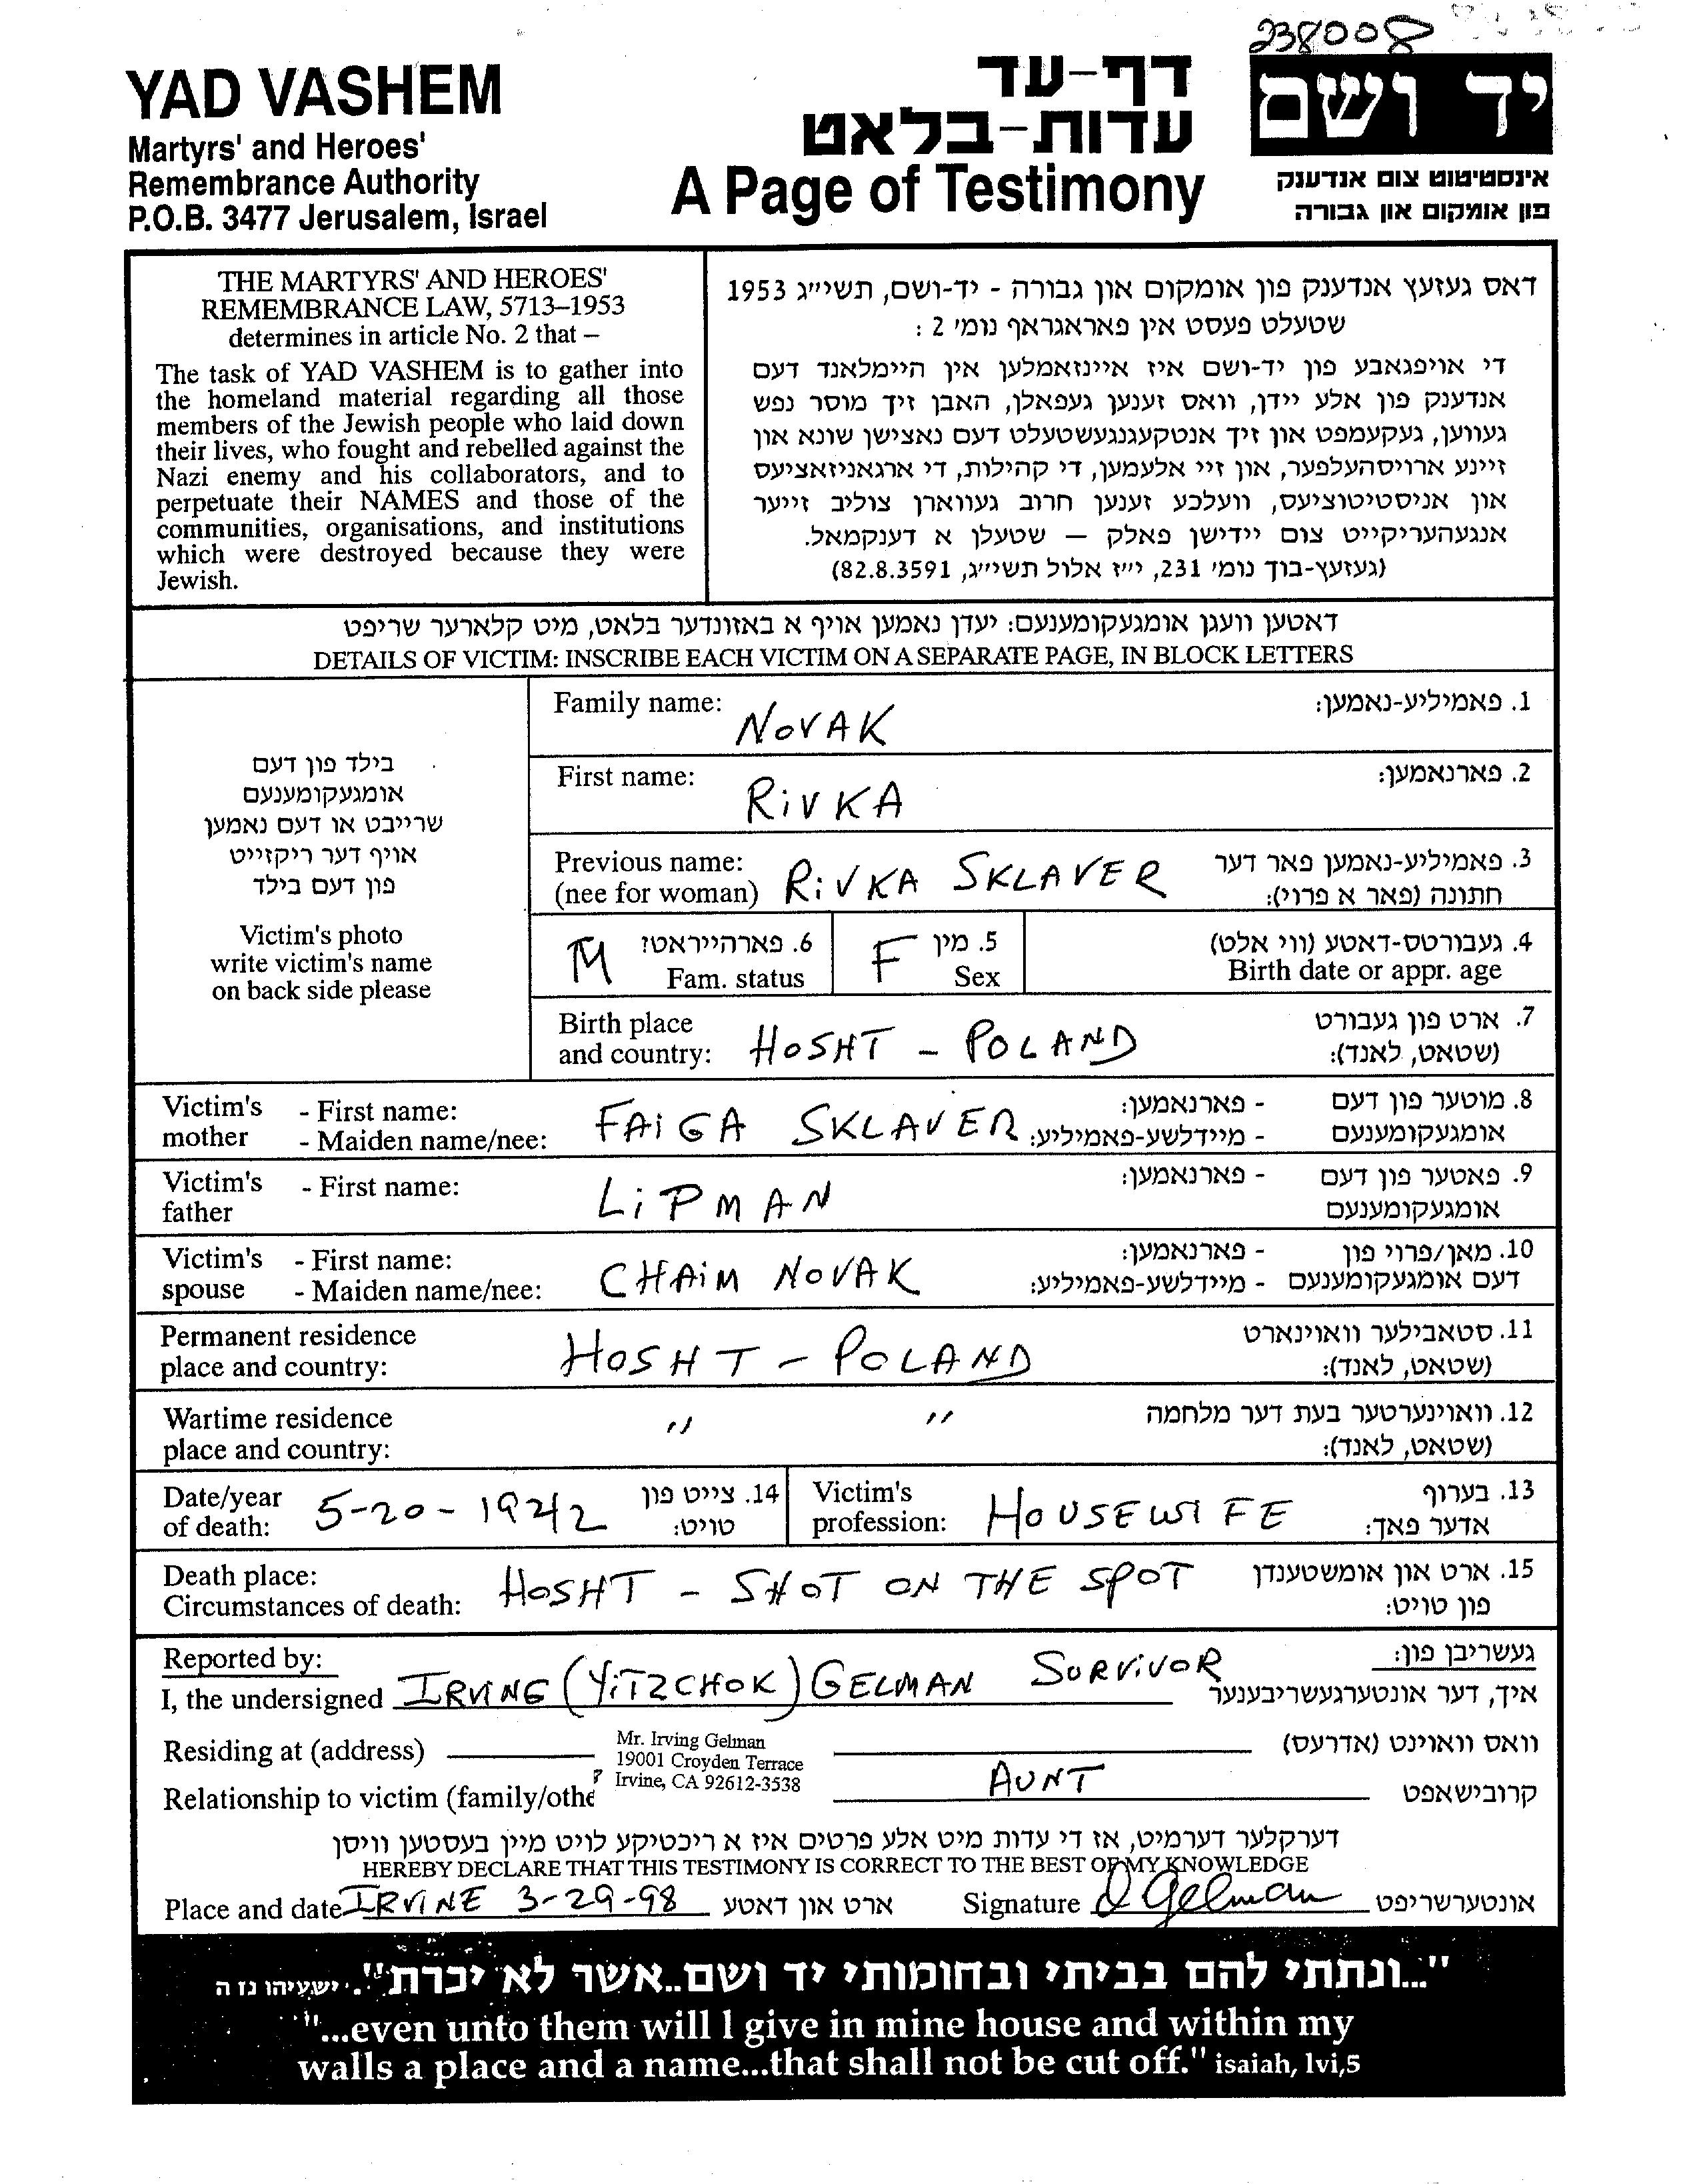 238008
YAD VASHEM
Martyrs' and Heroes'
Remembrance Authority
P.O.B. 3477 Jerusalem, Israel
דף-עד
עדות-בלאט
A Page of Testimony
יד ושם
אינסטיטוט צום אנדענק
פון אומקום און גבורה
THE MARTYRS' AND HEROES'
REMEMBRANCE LAW, 5713–1953
determines in article No. 2 that –
The task of YAD VASHEM is to gather into
the homeland material regarding all those
members of the Jewish people who laid down
their lives, who fought and rebelled against the
Nazi enemy and his collaborators, and to
perpetuate their NAMES and those of the
communities, organisations, and institutions
which were destroyed because they were
Jewish.
דאס געזעץ אנדענק פון אומקום און גבורה - יד-ושם, תשי״ג 1953
שטעלט פעסט אין פאראגראף נומ׳ 2 :
די אויפגאבע פון יד-ושם איז איינזאמלען אין היימלאנד דעם
אנדענק פון אלע יידן, וואס זענען געפאלן, האבן זיך מוסר נפש
געווען, געקעמפט און זיך אנטקעגנגעשטעלט דעם נאצישן שונא און
זיינע ארויסהעלפער, און זיי אלעמען, די קהילות, די ארגאניזאציעס
און אניסטיטוציעס, וועלכע זענען חרוב געווארן צוליב זייער
אנגעהעריקייט צום יידישן פאלק — שטעלן א דענקמאל.
(געזעץ-בוך נומ׳ 231, י״ז אלול תשי״ג, 82.8.3591)
דאטען וועגן אומגעקומענעם: יעדן נאמען אויף א באזונדער בלאט, מיט קלארער שריפט
DETAILS OF VICTIM: INSCRIBE EACH VICTIM ON A SEPARATE PAGE, IN BLOCK LETTERS
בילד פון דעם
אומגעקומענעם
שרייבט או דעם נאמען
אויף דער ריקזייט
פון דעם בילד
Victim's photo
write victim's name
on back side please
Family name: NOVAK 1. פאמיליע-נאמען:
First name: RIVKA 2. פארנאמען:
Previous name: 3. פאמיליע-נאמען פאר דער
(nee for woman) RIVKA SKLAVER חתונה (פאר א פרוי):
M 6. פארהייראט? F 5. מין 4. געבורטס-דאטע (ווי אלט)
Fam. status Sex Birth date or appr. age
Birth place 7. ארט פון געבורט
and country: HOSHT - POLAND (שטאט, לאנד):
Victim's - First name: - פארנאמען: 8. מוטער פון דעם
mother - Maiden name/nee: FAIGA SKLAVER - מיידלשע-פאמיליע: אומגעקומענעם
Victim's - First name: LIPMAN - פארנאמען: 9. פאטער פון דעם
father אומגעקומענעם
Victim's - First name: - פארנאמען: 10. מאן/פרוי פון
spouse - Maiden name/nee: CHAIM NOVAK - מיידלשע-פאמיליע: דעם אומגעקומענעם
Permanent residence 11. סטאבילער וואוינארט
place and country: HOSHT - POLAND (שטאט, לאנד):
Wartime residence " " 12. וואוינערטער בעת דער מלחמה
place and country: (שטאט, לאנד):
Date/year 14. צייט פון Victim's 13. בערוף
of death: 5-20-1942 טויט: profession: HOUSEWIFE אדער פאך:
Death place: 15. ארט און אומשטענדן
Circumstances of death: HOSHT - SHOT ON THE SPOT פון טויט:
Reported by: געשריבן פון:
I, the undersigned IRVING (YITZCHOK) GELMAN SURVIVOR איך, דער אונטערגעשריבענער
Residing at (address) Mr. Irving Gelman וואס וואוינט (אדרעס)
19001 Croyden Terrace
Irvine, CA 92612-3538
Relationship to victim (family/othe AUNT קרובישאפט
דערקלער דערמיט, אז די עדות מיט אלע פרטים איז א ריכטיקע לויט מיין בעסטען וויסן
HEREBY DECLARE THAT THIS TESTIMONY IS CORRECT TO THE BEST OF MY KNOWLEDGE
Place and date IRVINE 3-29-98 ארט און דאטע Signature I Gelman אונטערשריפט
"...ונתתי להם בביתי ובחומותי יד ושם..אשר לא יכרת". ישעיהו נז ה
"...even unto them will I give in mine house and within my
walls a place and a name...that shall not be cut off." isaiah, lvi,5